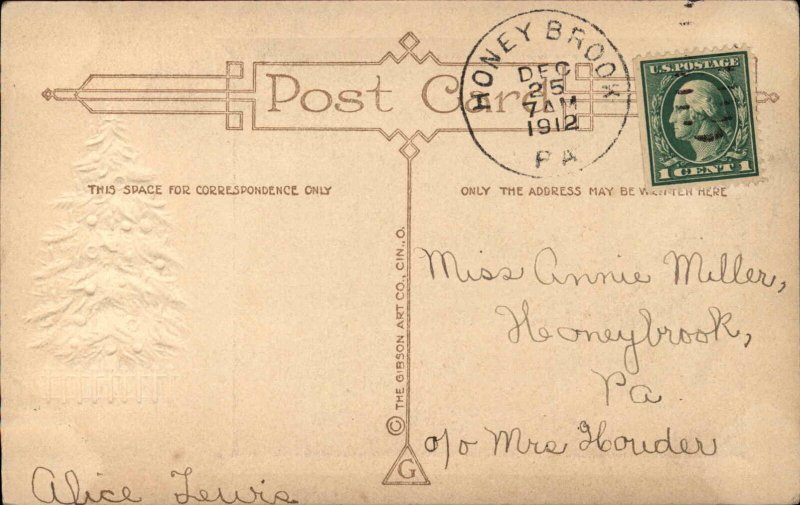 Post Card
HONEY BROOK
DEC
25
7 AM
1912
PA
U.S. POSTAGE
1 CENT 1
THIS SPACE FOR CORRESPONDENCE ONLY
ONLY THE ADDRESS MAY BE WRITTEN HERE
© THE GIBSON ART CO., CIN., O.
G
Miss Annie Miller,
Honeybrook,
Pa
c/o Mrs Houder
Alice Lewis